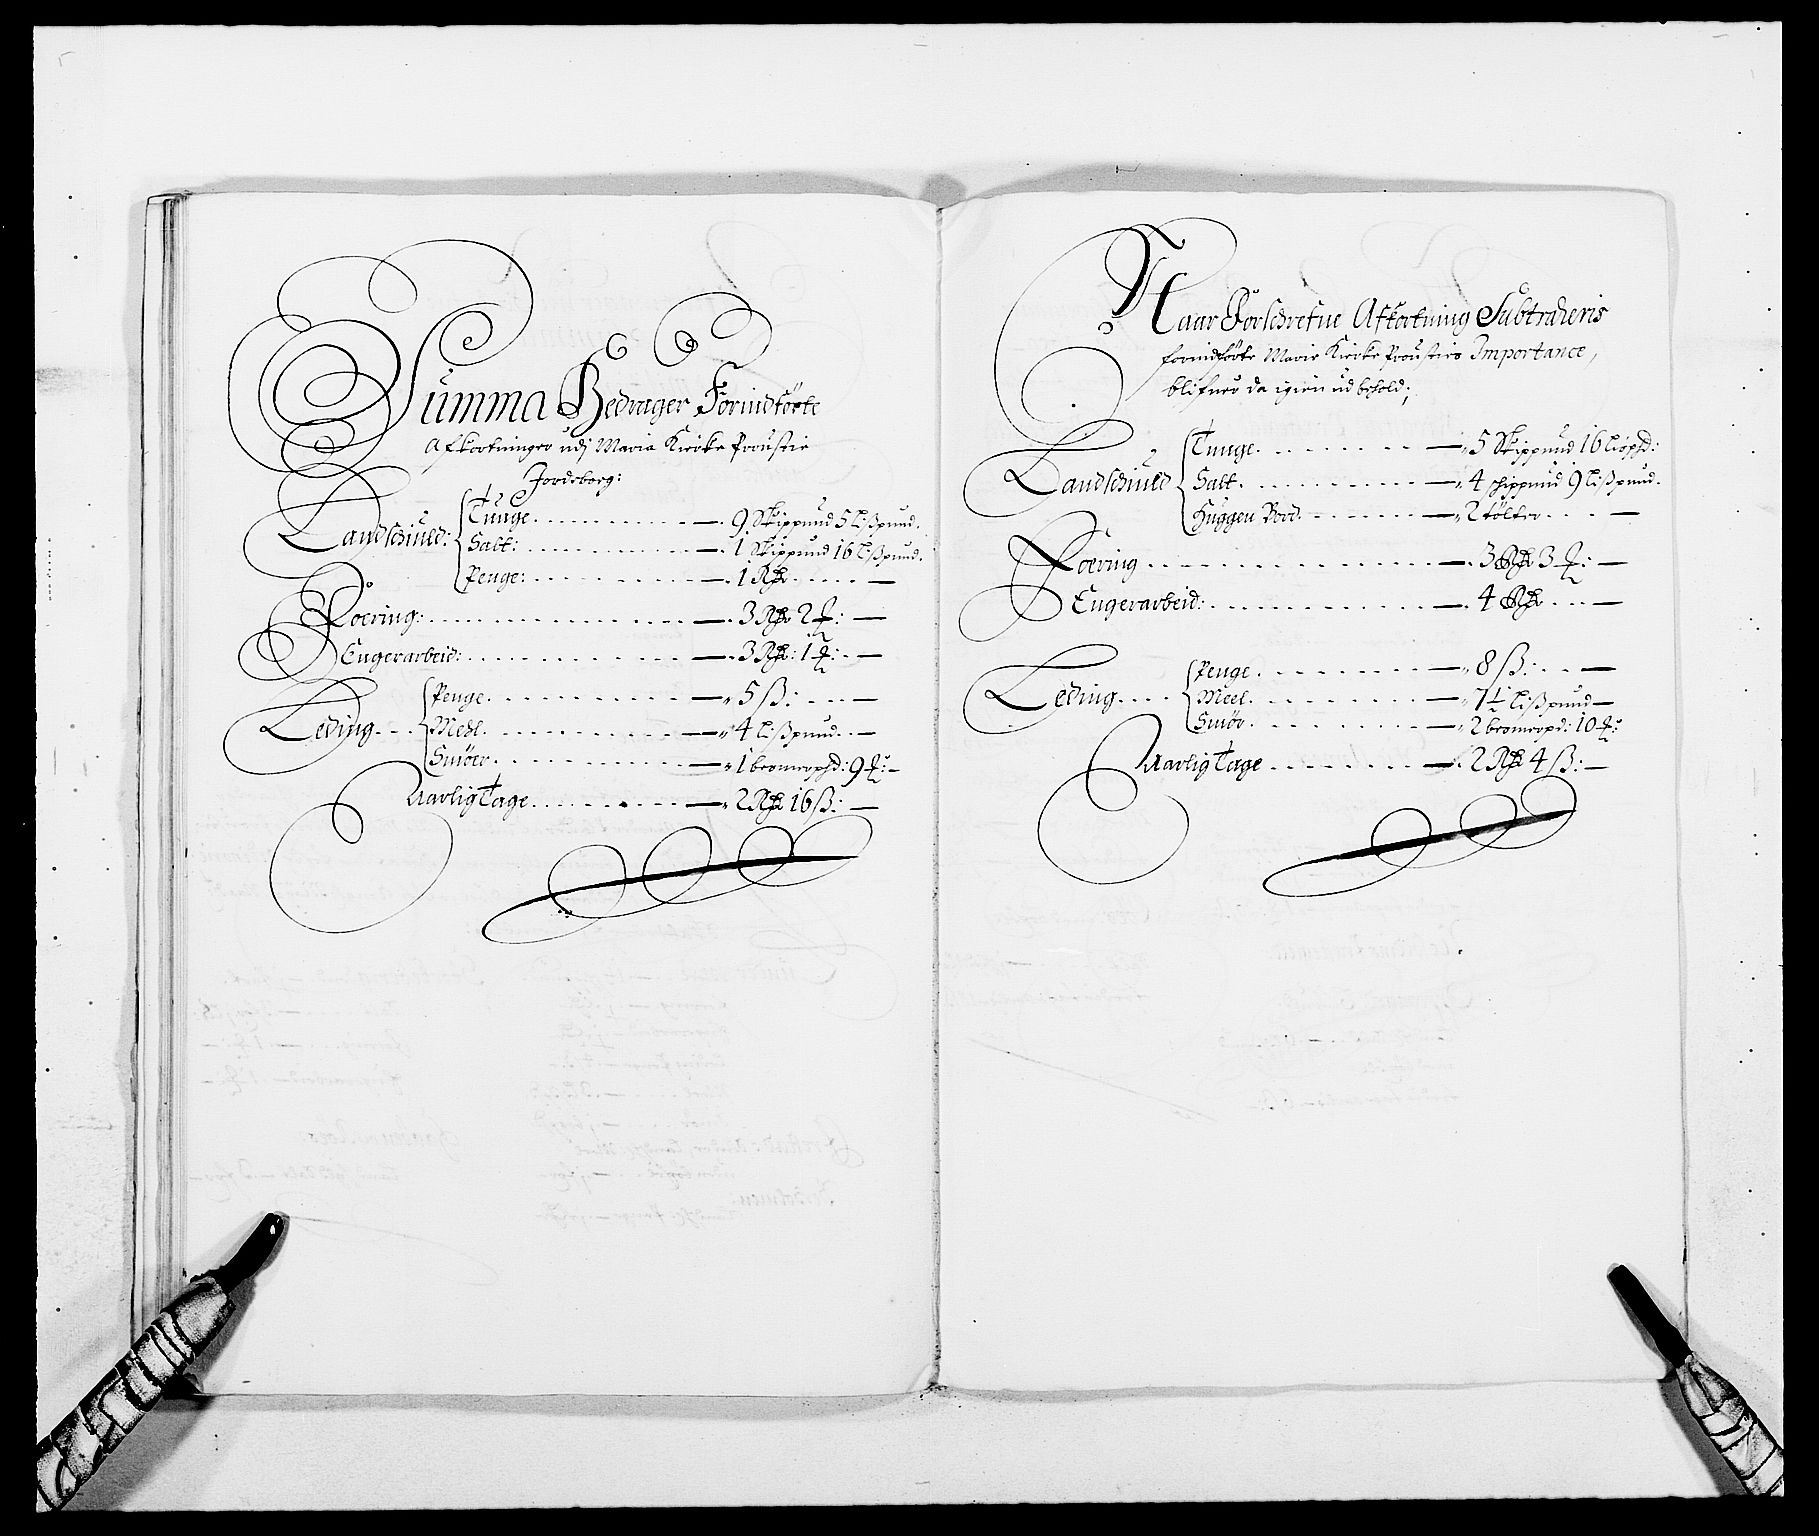 Summa Bedrager Forindførte
Afkortninger udj Maria Kircke Proustie
Jordebog:
Landschiuld:
Tunge - 9 Skippund 5 Lißpund.
Salt: - 1 Skippund 16 Lißpund.
Penge: - 1 Rdr
Roering: - 3 Rdr 2 ƒ: -
Engerarbeid: - 3 Rdr: 1 ƒ: -
Leding
Penge - 5 ß: -
Meel - 4 Lißpund -
Smöer - 1 bromerpd: 9 ƒ: -
Aarlig Tage - 2 Rdr 16 ß: -
Naar Forschrefne Afkortning Subtraheris
forindførte Marie Kircke Prousties Importance,
blifver da igien udbehold;
Landschiuld
Tunge - 5 Skippund 16 Lispd:
Salt - 4 schippund 9 Lißpund.
Huggen Bord - 2 tölter -
Roering - 3 Rdr 3 ƒ: -
Engerarbeid: - 4 Rdr -
Leding
Penge - 8 ß: -
Meel - 7½ Lißpund -
Smör - 2 bromerpd: 10 ƒ:
Aarlig Tage - 2 Rdr 4 ß: -